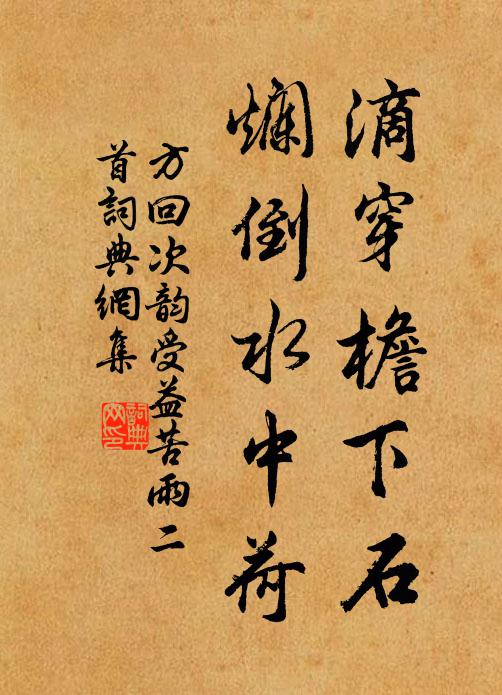 滴穿檐下石
爛倒水中荷
方回次韵受益苦雨二
首詞典網集
詞典
网印